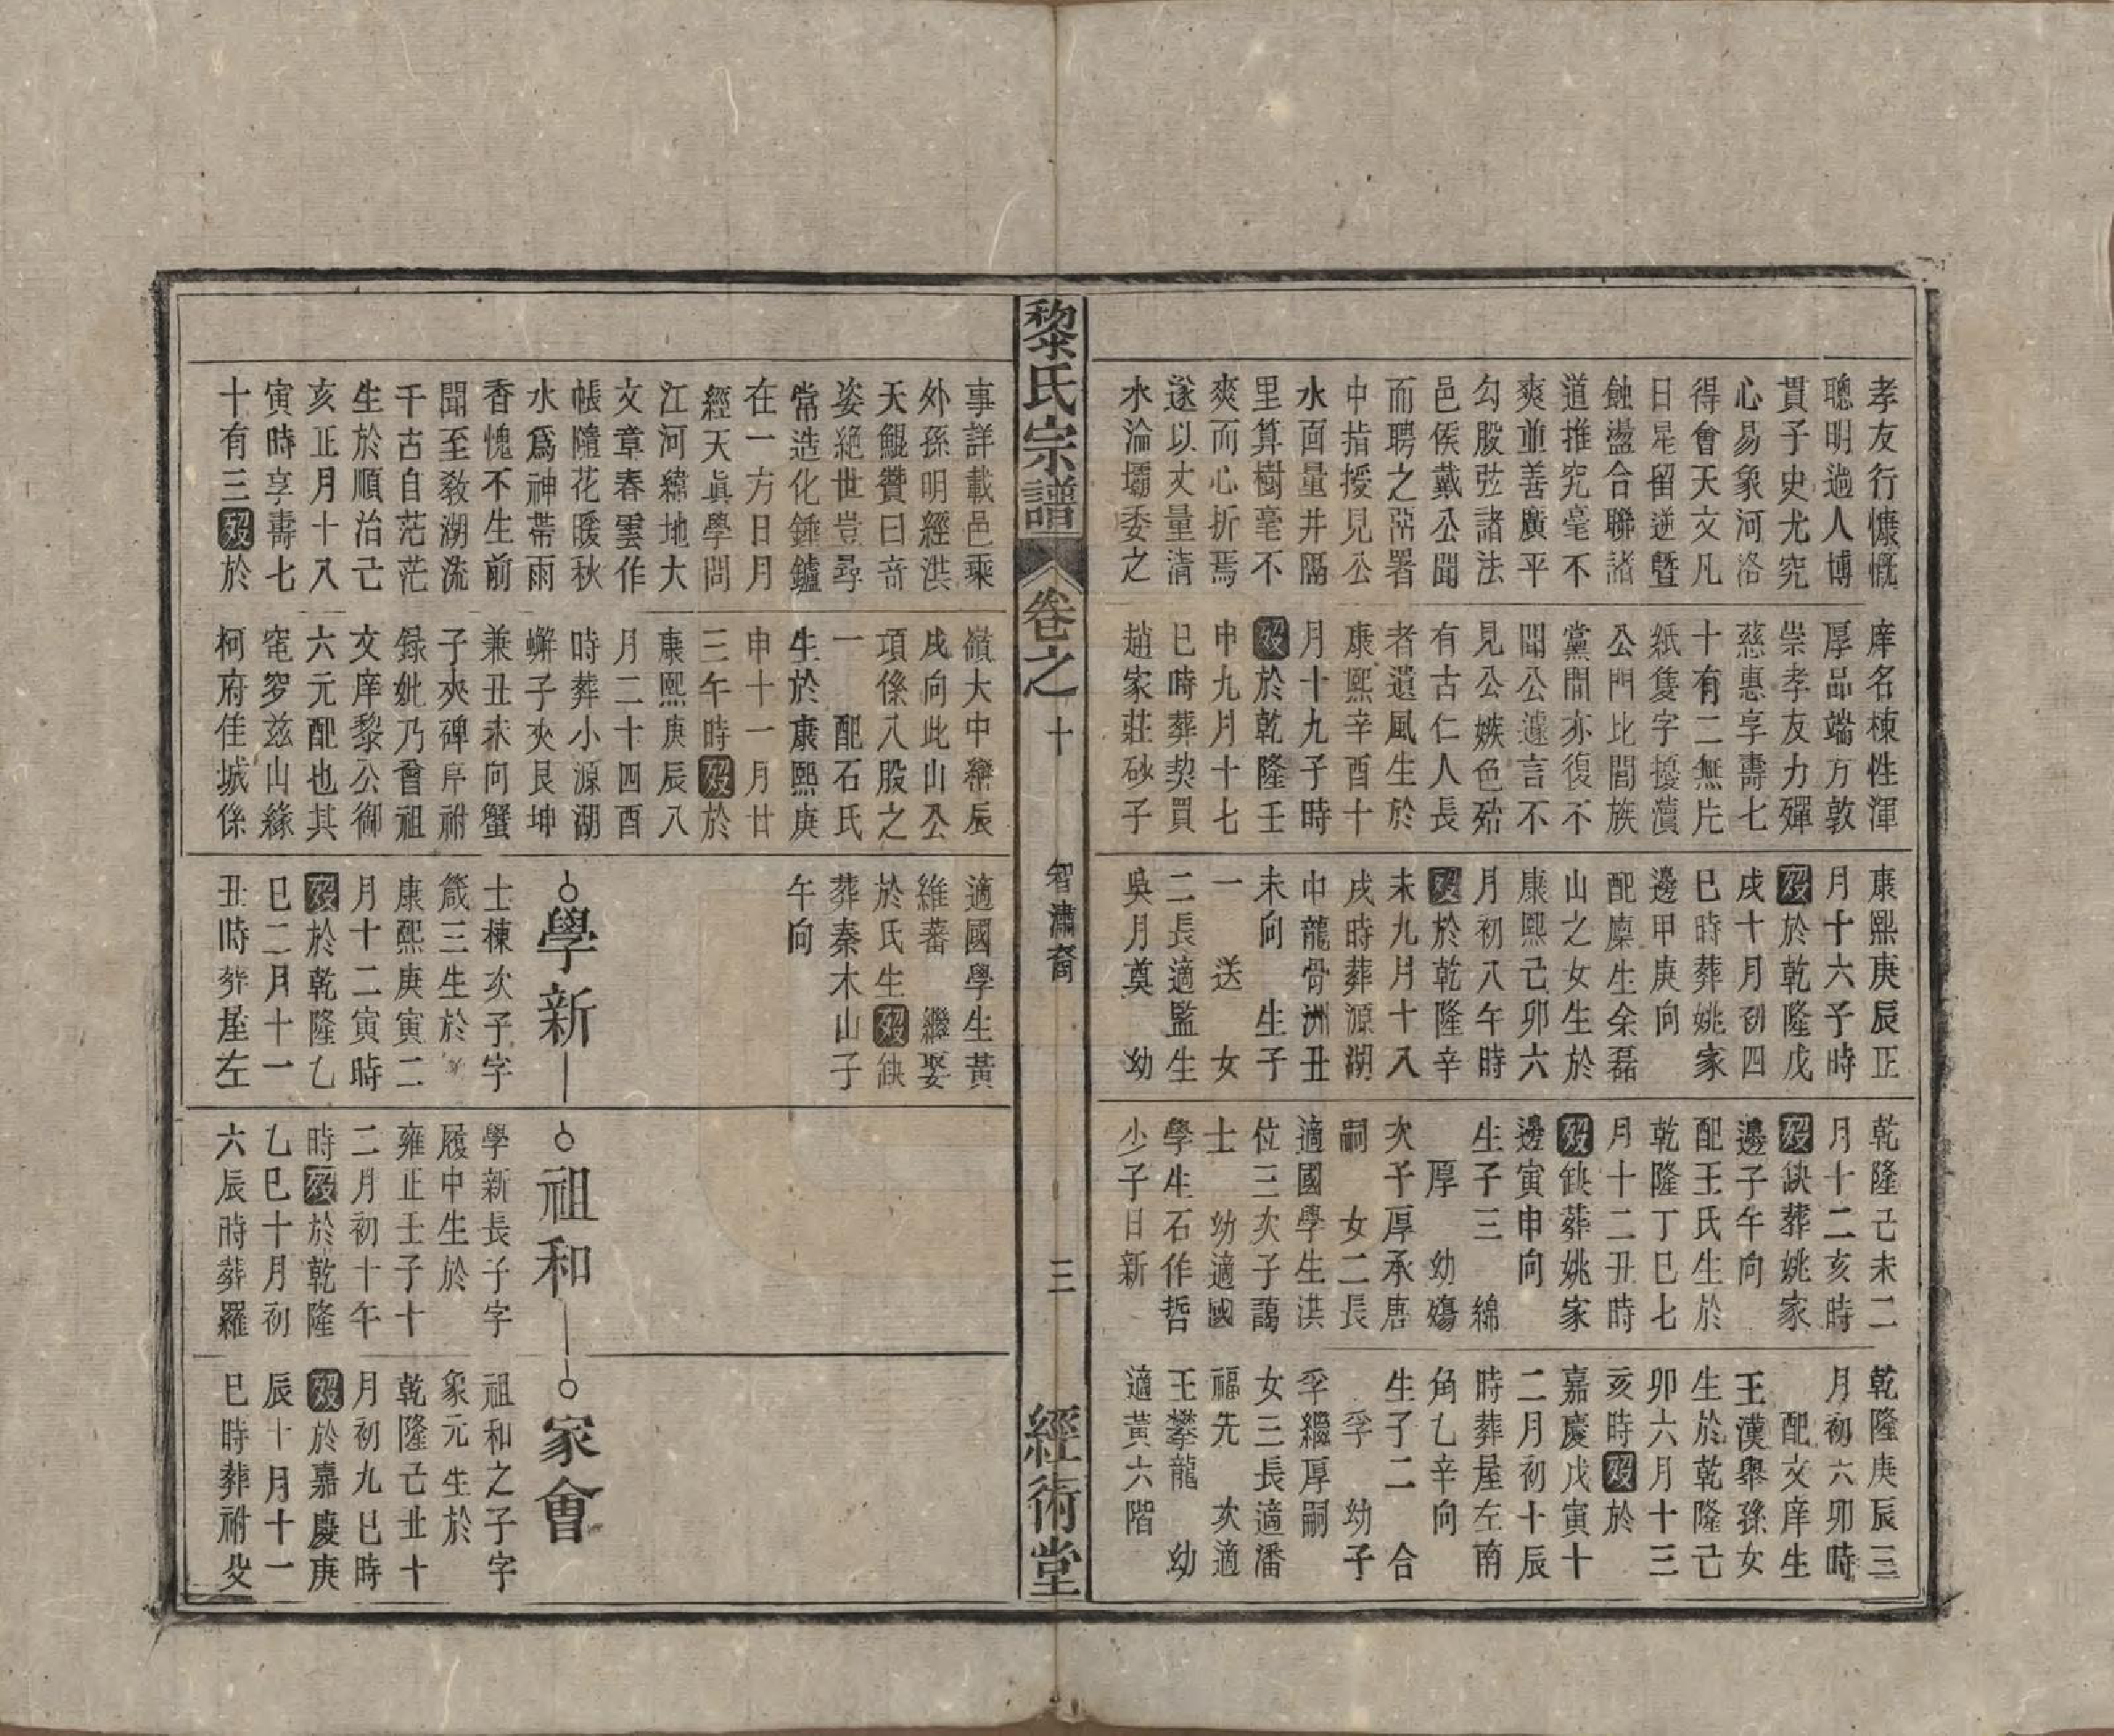 孝友行慷慨
聰明過人博
貫子史尤究
心易象河洛
得會天文凡
日星留逆暨
蝕盪合聯諸
道推究毫不
爽並善廣平
勾股弦諸法
邑侯戴公聞
而聘之亟署
中指授見公
水面量井隔
里算樹毫不
爽而心折焉
遂以丈量清
水淪壩委之
庠名棟性渾
厚品端方敦
崇孝友力殫
慈惠享壽七
十有二無片
紙隻字擾瀆
公門比閭族
黨間亦復不
聞公遽言不
見公嫉色殆
有古仁人長
者遺風生於
康熙辛酉十
月十九子時
歿於乾隆壬
申九月十七
巳時葬契買
趙家莊砂子
康熙庚辰正
月十六子時
歿於乾隆戊
戌十月初四
巳時葬姚家
邊甲庚向
配廩生余磊
山之女生於
康熙己卯六
月初八午時
歿於乾隆辛
未九月十八
戌時葬源湖
中龍骨洲丑
未向 生子
一 送 女
二長適監生
吳月奠 幼
乾隆己未二
月十二亥時
歿缺葬姚家
邊子午向
配王氏生於
乾隆丁巳七
月十二丑時
歿缺葬姚家
邊寅申向
生子三 綿
厚 幼殤
次子厚承唐
嗣 女二長
適國學生洪
位三次子藹
士 幼適國
學生石作哲
少子日新
乾隆庚辰三
月初六卯時
配文庠生
王漢舉孫女
生於乾隆己
卯六月十三
亥時歿於
嘉慶戊寅十
二月初十辰
時葬屋左南
角乙辛向
生子二 合
孚 幼子
孚繼厚嗣
女三長適潘
福先 次適
王攀龍 幼
適黃六階
黎氏宗譜
卷之十
智潚裔
三
經術堂
事詳載邑乘
外孫明經洪
天鯤贊曰奇
姿絶世豈尋
常造化錘鑪
在一方日月
經天眞學問
江河緯地大
文章春雲作
帳隨花暖秋
水爲神帶雨
香愧不生前
聞至敎湖流
千古自茫茫
生於順治己
亥正月十八
寅時享壽七
十有三歿於
嶺大中䋎辰
戌向此山公
項係八股之
一 配石氏
生於康熙庚
申十一月廿
三午時歿於
康熙庚辰八
月二十四酉
時葬小源湖
蠏子夾艮坤
兼丑未向蟹
子夾碑序祔
録妣乃曾祖
文庠黎公御
六元配也其
窀穸兹山緣
柯府佳城係
適國學生黃
維蕃 繼娶
於氏生歿缺
葬秦木山子
午向
學新
士棟次子字
箴三生於
康熙庚寅二
月十二寅時
歿於乾隆乙
巳二月十一
丑時葬屋左
祖和
學新長子字
履中生於
雍正壬子十
二月初十午
時歿於乾隆
乙巳十月初
六辰時葬羅
家會
祖和之子字
象元生於
乾隆己丑十
月初九巳時
歿於嘉慶庚
辰十月十一
巳時葬祔父